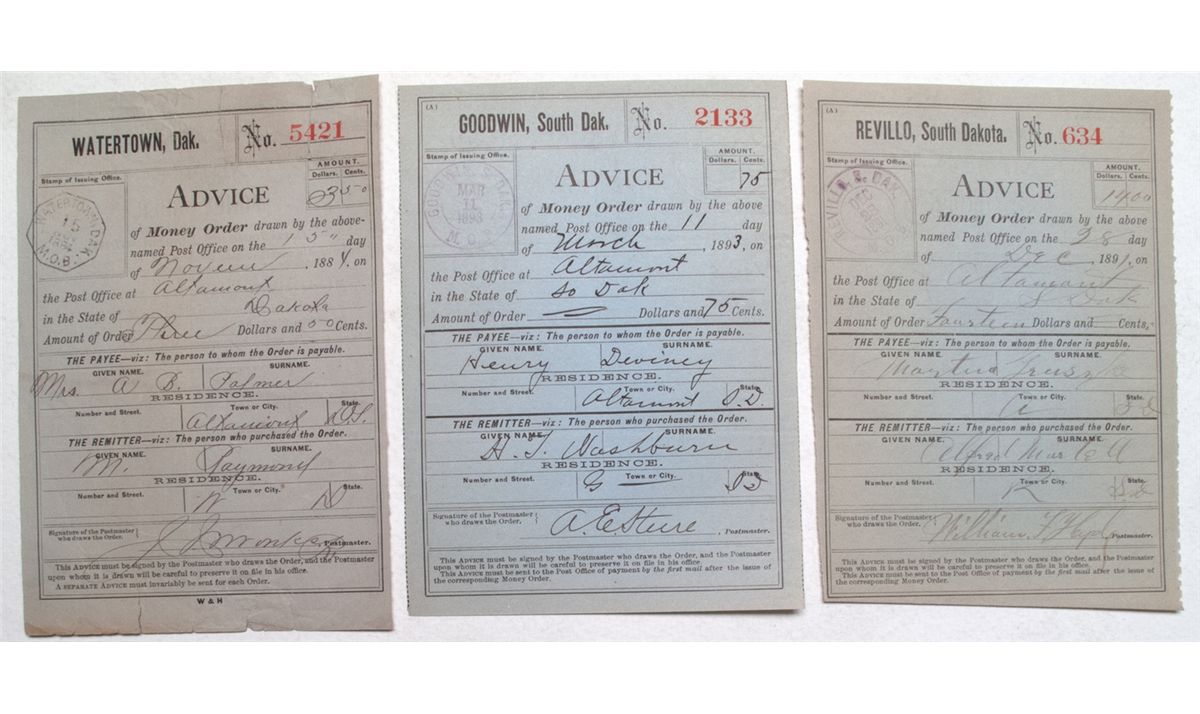 WATERTOWN, Dak.
No. 5421
Stamp of Issuing Office.
AMOUNT.
Dollars. Cents.
3 50
WATERTOWN DAK.
15
M.O.B.
ADVICE
of Money Order drawn by the above-
named Post Office on the 15" day
of , 1884, on
the Post Office at Altamont
in the State of Dakota
Amount of Order Three Dollars and 50 Cents.
THE PAYEE—viz: The person to whom the Order is payable.
GIVEN NAME. SURNAME.
Mrs. A B. Palmer
RESIDENCE.
Number and Street. Town or City. State.
Altamont D.T.
THE REMITTER—viz: The person who purchased the Order.
GIVEN NAME. SURNAME.
M.
RESIDENCE.
Number and Street. Town or City. State.
W D
Signature of the Postmaster
who draws the Order.
Postmaster.
This ADVICE must be signed by the Postmaster who draws the Order, and the Postmaster
upon whom it is drawn will be careful to preserve it on file in his office.
A SEPARATE ADVICE must invariably be sent for each Order.
W & H
(A)
GOODWIN, South Dak.
No. 2133
Stamp of Issuing Office.
AMOUNT.
Dollars. Cents.
75
MAR
11
1893
M. O. B.
ADVICE
of Money Order drawn by the above
named Post Office on the 11 day
of March , 1893, on
the Post Office at Altamont
in the State of So Dak
Amount of Order — Dollars and 75 Cents.
THE PAYEE—viz: The person to whom the Order is payable.
GIVEN NAME. SURNAME.
Henry Deviney
RESIDENCE.
Number and Street. Town or City. State.
Altamont S.D.
THE REMITTER—viz: The person who purchased the Order.
GIVEN NAME. SURNAME.
H. T. Washburn
RESIDENCE.
Number and Street. Town or City. State.
G SD
Signature of the Postmaster
who draws the Order.
A. E. Postmaster.
This ADVICE must be signed by the Postmaster who draws the Order, and the Postmaster
upon whom it is drawn will be careful to preserve it on file in his office.
This ADVICE must be sent to the Post Office of payment by the first mail after the issue of
the corresponding Money Order.
(A)
REVILLO, South Dakota.
No. 634
Stamp of Issuing Office.
AMOUNT.
Dollars. Cents.
14 00
REVILLO, S. DAK.
DEC
28
ADVICE
of Money Order drawn by the above
named Post Office on the 28 day
of Dec , 1891, on
the Post Office at Altamont
in the State of S Dak
Amount of Order Fourteen Dollars and Cents.
THE PAYEE—viz: The person to whom the Order is payable.
GIVEN NAME. SURNAME.
RESIDENCE.
Number and Street. Town or City. State.
A S D
THE REMITTER—viz: The person who purchased the Order.
GIVEN NAME. SURNAME.
Alfred Martell
RESIDENCE.
Number and Street. Town or City. State.
R S D
Signature of the Postmaster
who draws the Order.
William Postmaster.
This ADVICE must be signed by the Postmaster who draws the Order, and the Postmaster
upon whom it is drawn will be careful to preserve it on file in his office.
This ADVICE must be sent to the Post Office of payment by the first mail after the issue of
the corresponding Money Order.